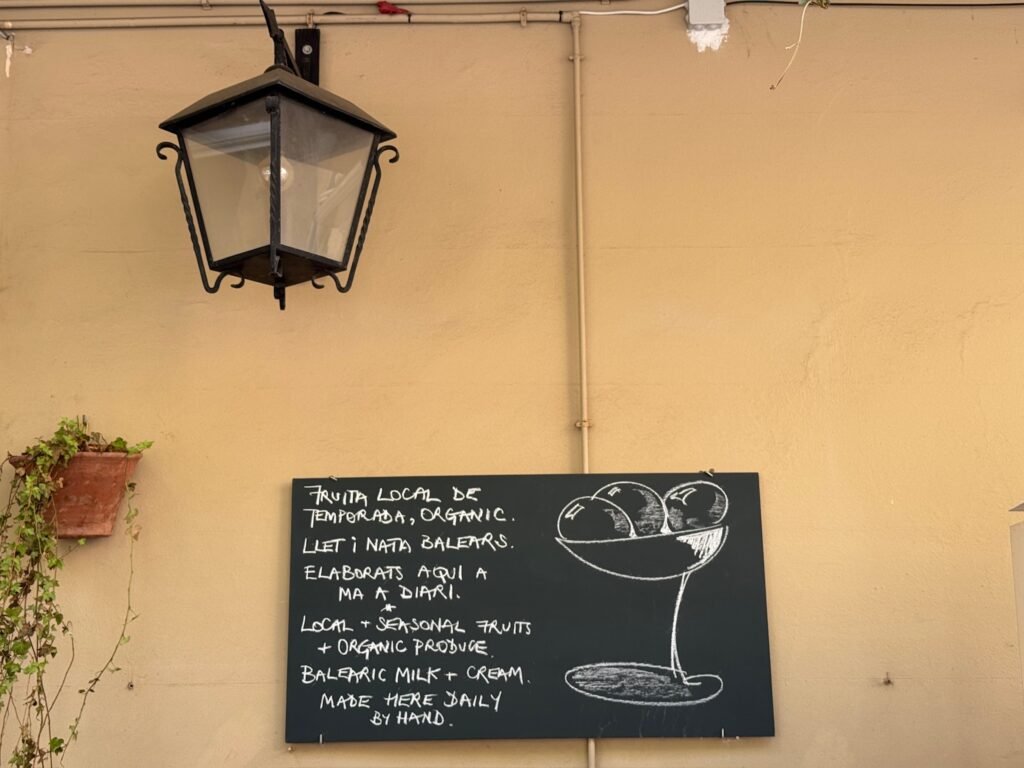 FRUITA LOCAL DE
TEMPORADA, ORGANIC.
LLET i NATA BALEARS.
ELABORATS AQUI A
MA A DIARI.
*
LOCAL + SEASONAL FRUITS
+ ORGANIC PRODUCE.
BALEARIC MILK + CREAM.
MADE HERE DAILY
BY HAND.